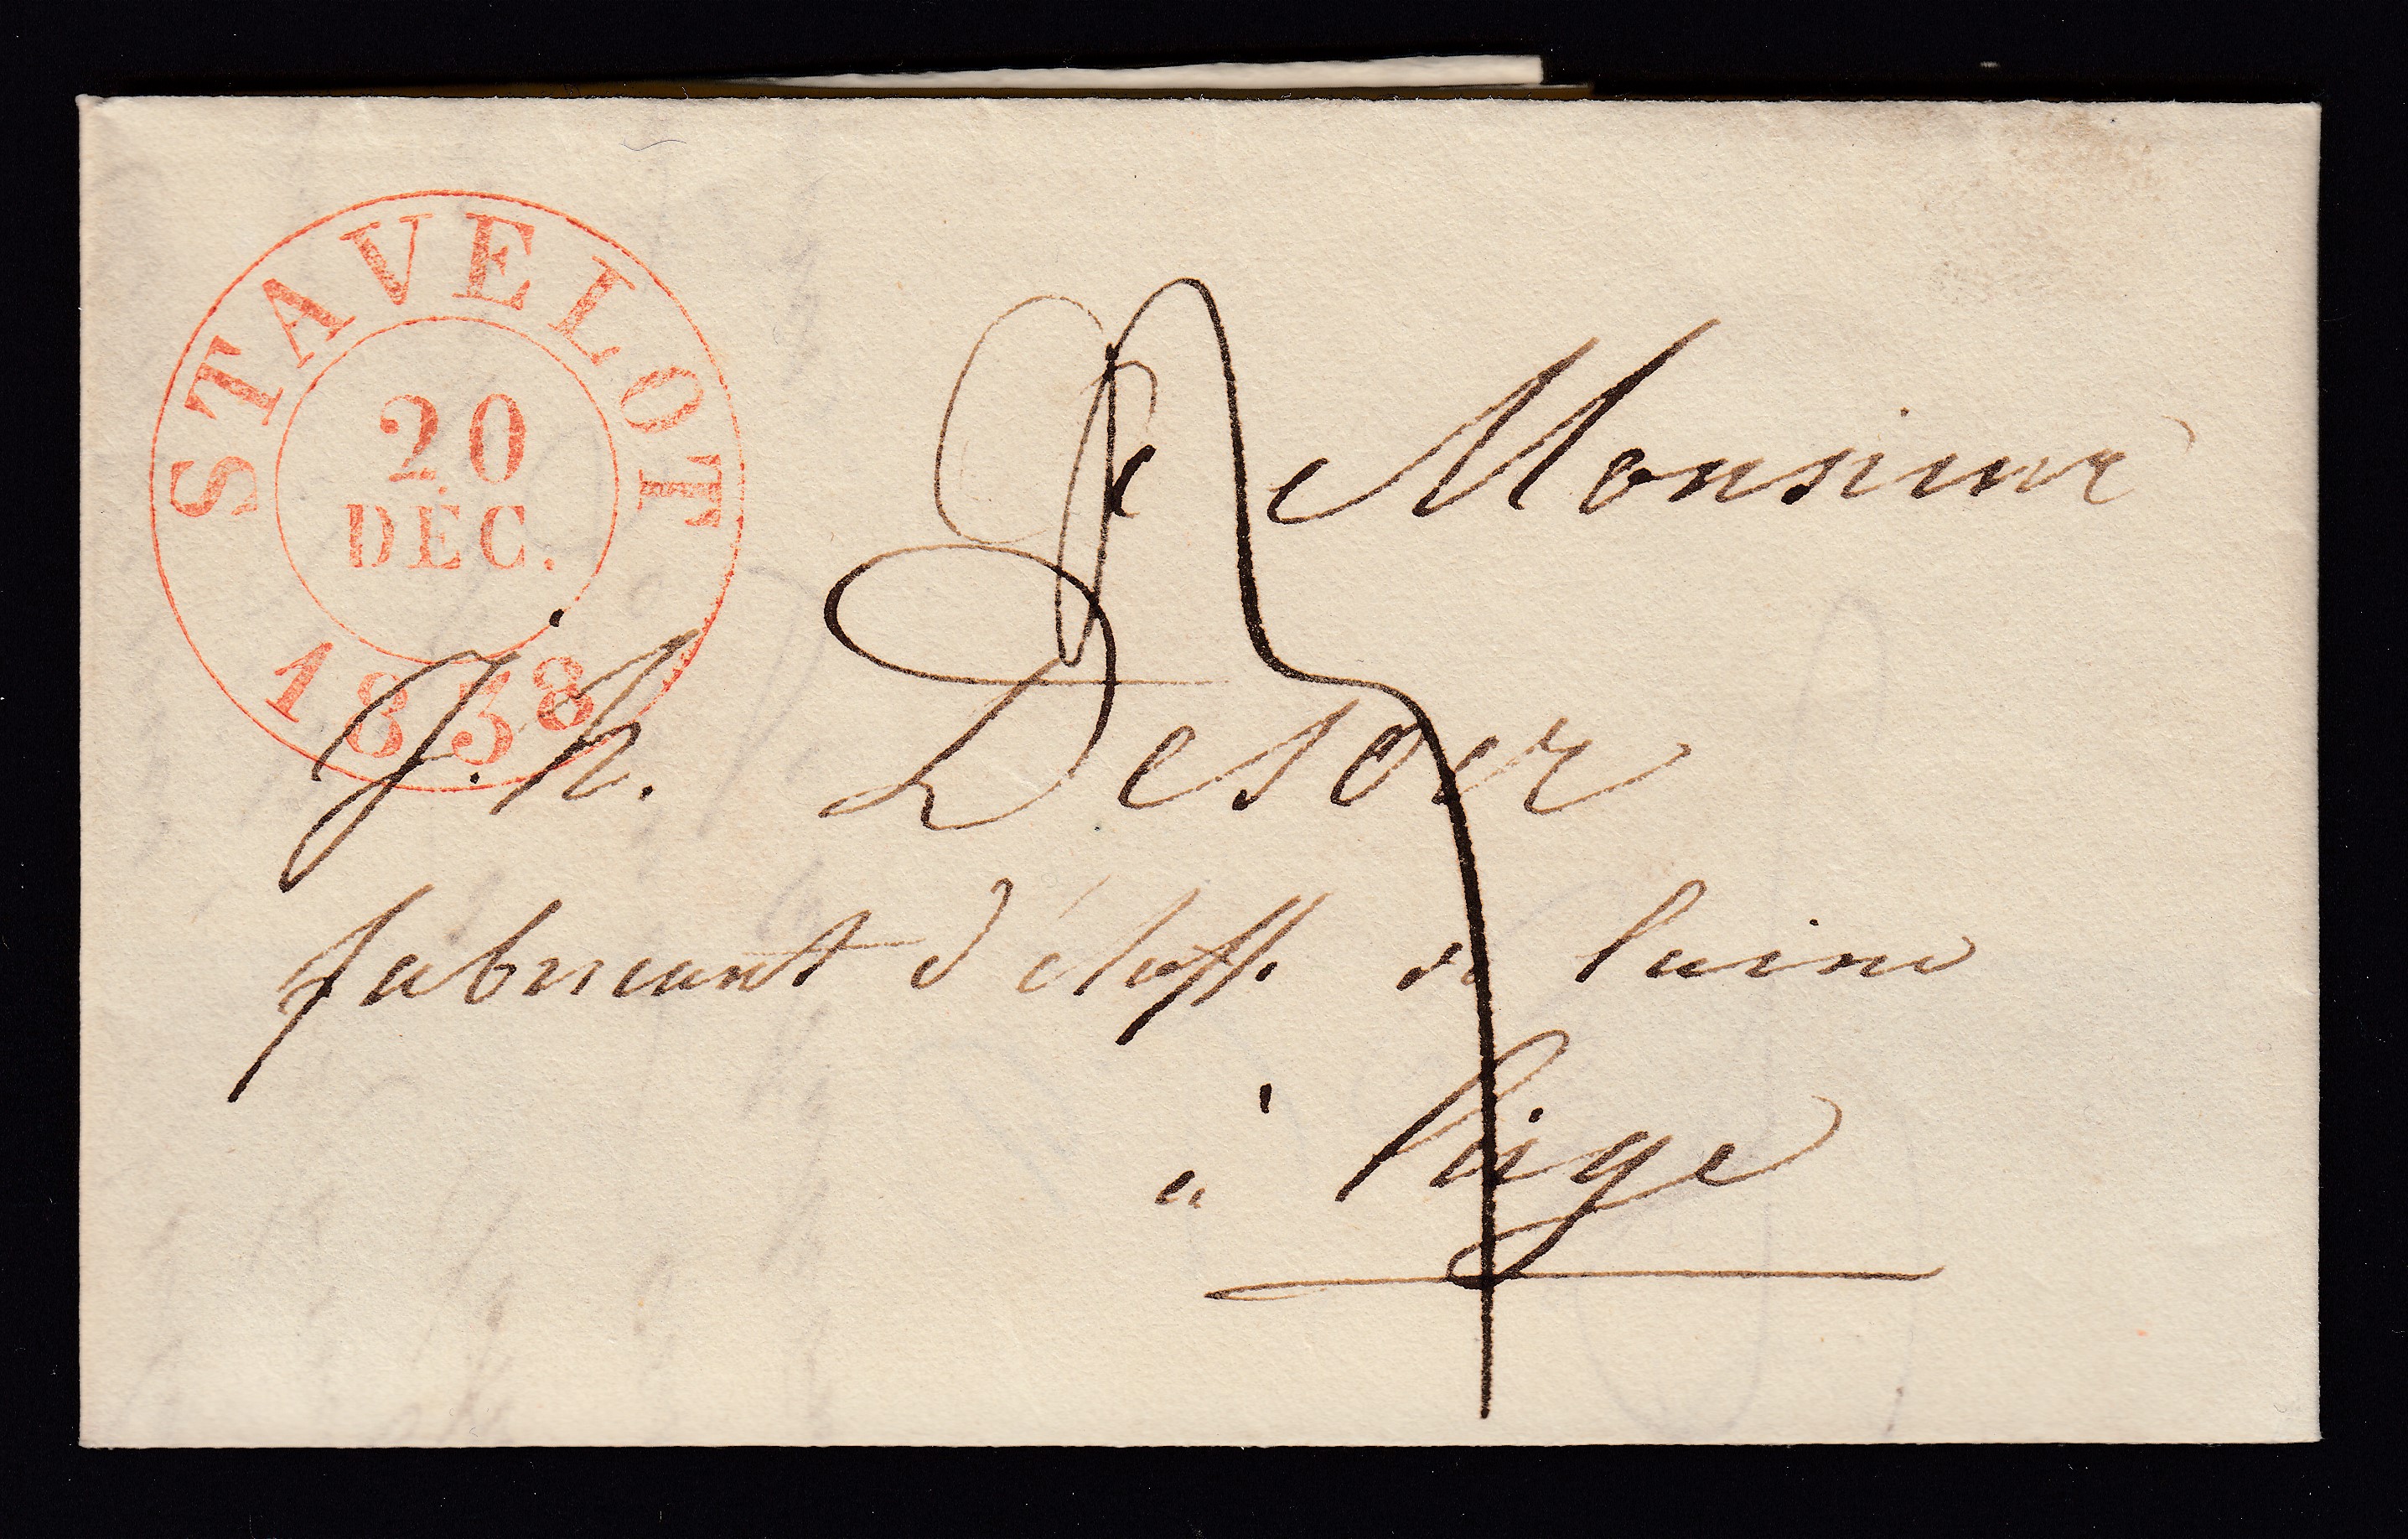 STAVELOT
20
DÉC.
1838
Monsieur
J. h. Desoer
fabricant d'étoffe de laine
à Liége